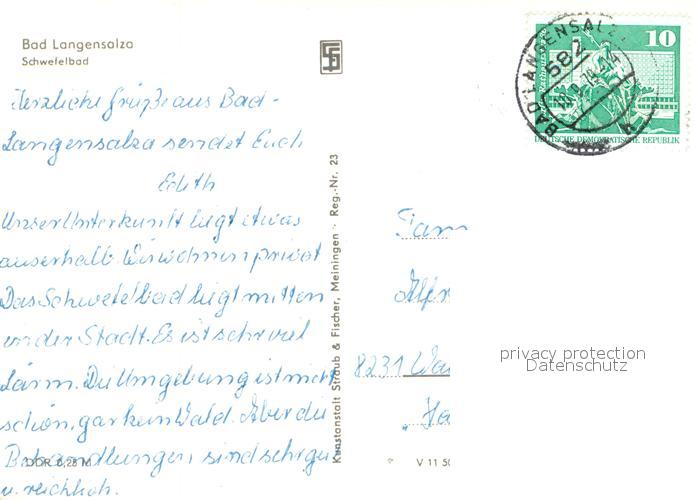 Bad Langensalza
Schwefelbad
Herzliche Grüße aus Bad-
Langensalza sendet Euch
Edith
Unser Unterkunft liegt etwas
auserhalb. Wir wohnen privat
Das Schwefelbad liegt mitten
in der Stadt. Es ist sehr viel
Lärm. Die Umgebung ist nicht
schön, gar kein Wald. Aber die
Behandlungen sind sehr gu
u. reichlich.
DDR 0,25 M
Kunstanstalt Straub & Fischer, Meiningen · Reg.-Nr. 23
V 11 50
BAD LANGENSALZ
582
10
DEUTSCHE DEMOKRATISCHE REPUBLIK
Fam
Alfr
8231 Wa
privacy protection
Datenschutz